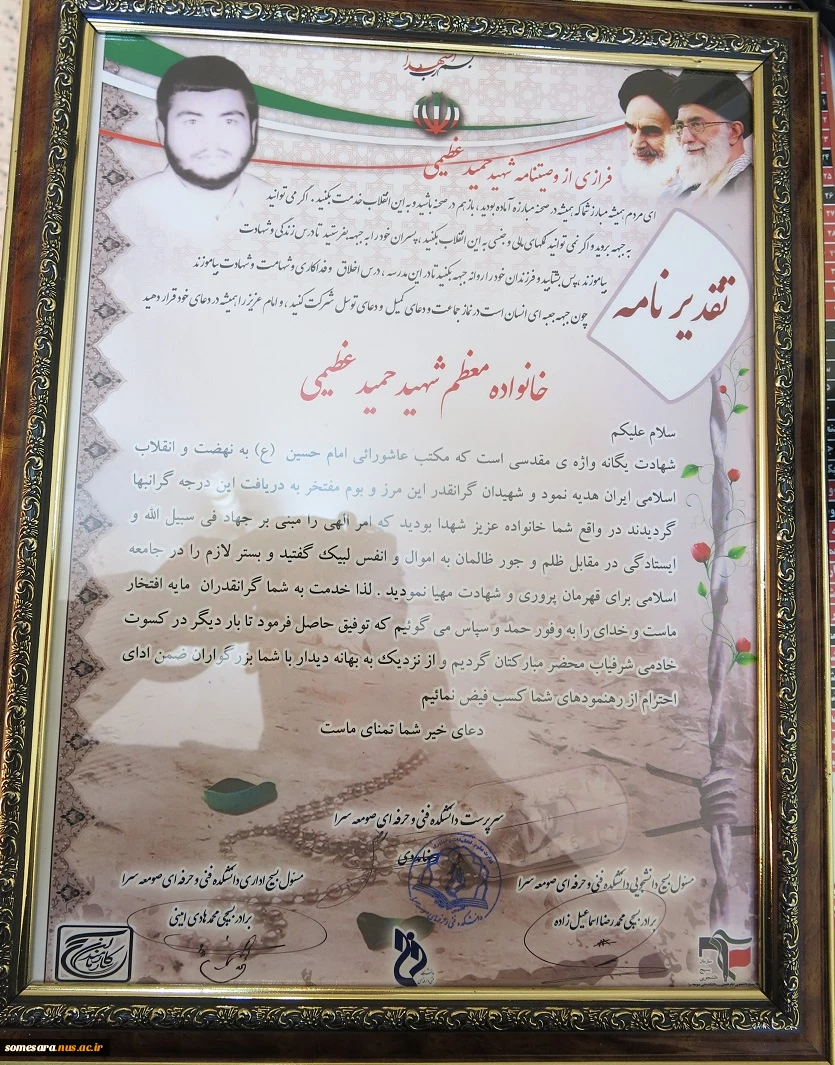 فرازی از وصیتنامه شهید حمید عظیمی
ای مردم همیشه مبارز شما که همیشه در صحنه مبارزه آماده بودید، باز هم در صحنه باشید و به این انقلاب خدمت بکنید. اگر می توانید
به جبهه بروید و اگر نمی توانید کمکهای مالی و جنسی به این انقلاب بکنید، پسران خود را به جبهه بفرستید تا درس زندگی و شهادت
بیاموزند، پس بشتابید و فرزندان خود را روانه جبهه بکنید تا در این مدرسه، درس اخلاق وفداکاری و شهامت و شهادت بیاموزند
چون جبهه جعبه ای انسان است در نماز جماعت و دعای کمیل و دعای توسل شرکت کنید، و امام عزیز را همیشه در دعای خود قرار دهید
تقدیر نامه
خانواده معظم شهید حمید عظیمی
سلام علیکم
شهادت یگانه واژه ی مقدسی است که مکتب عاشورائی امام حسین (ع) به نهضت و انقلاب
اسلامی ایران هدیه نمود و شهیدان گرانقدر این مرز و بوم مفتخر به دریافت این درجه گرانبها
گردیدند در واقع شما خانواده عزیز شهدا بودید که امر الهی را مبنی بر جهاد فی سبیل الله و
ایستادگی در مقابل ظلم و جور ظالمان به اموال و انفس لبیک گفتید و بستر لازم را در جامعه
اسلامی برای قهرمان پروری و شهادت مهیا نمودید . لذا خدمت به شما گرانقدران مایه افتخار
ماست و خدای را به وفور حمد و سپاس می گوئیم که توفیق حاصل فرمود تا بار دیگر در کسوت
خادمی شرفیاب محضر مبارکتان گردیم و از نزدیک به بهانه دیدار با شما بزرگواران ضمن ادای
احترام از رهنمودهای شما کسب فیض نمائیم
دعای خیر شما تمنای ماست
سرپرست دانشکده فنی و حرفه ای صومعه سرا
مسئول بسیج دانشجویی دانشکده فنی و حرفه ای صومعه سرا
برادر بسیجی محمد رضا اسماعیل زاده
مسئول بسیج اداری دانشکده فنی و حرفه ای صومعه سرا
برادر بسیجی محمد هادی امینی
somesara.nus.ac.ir